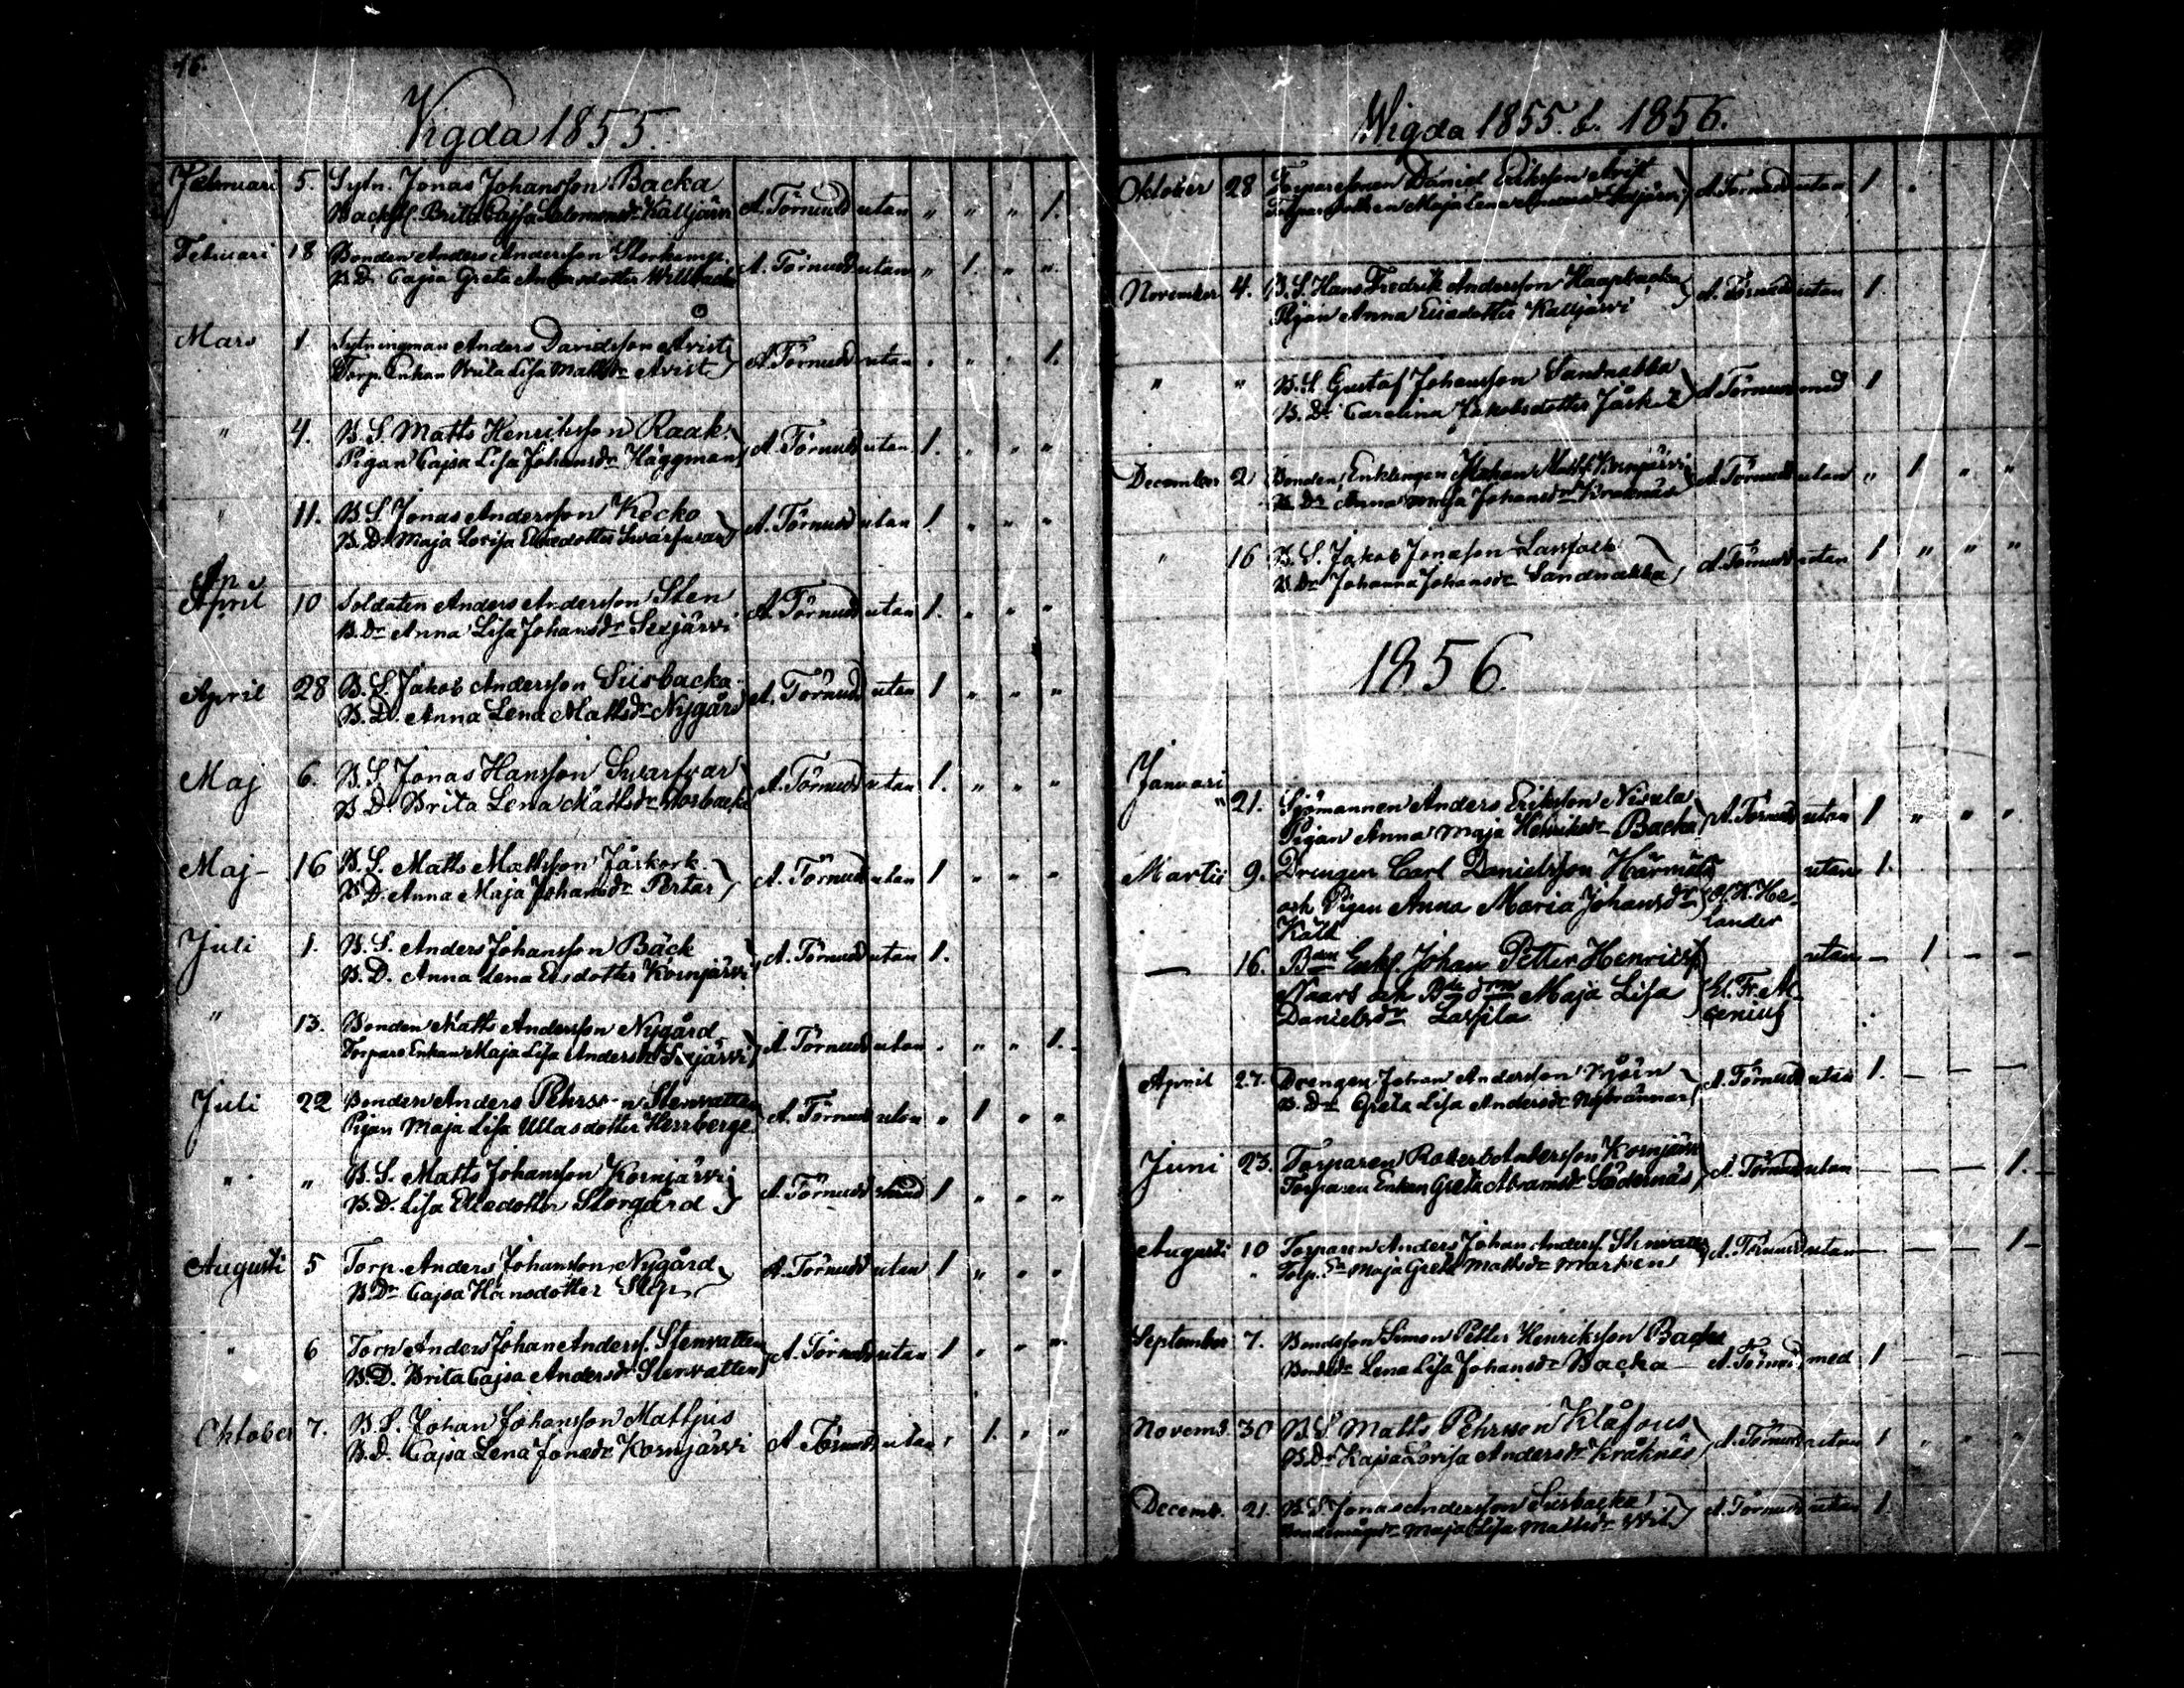 16.
Vigda 1855.
Februari 5. Sytn. Jonas Johansson Backa
Brita Cajsa Salomonsdr Kalljärvi A. Törnudd utan " " " 1.
Februari 18 Bonden Anders Andersson Storkamp.
B. D. Cajsa Greta Andersdotter A. Törnudd utan " 1. " "
Mars 1. Sytningman Anders Davidsson Åvist
Torp. Enkan Brita Lisa Mattsdr Åvist A. Törnudd utan " " " 1.
" 4. B. S. Matts Henriksson Raak
Pigan Cajsa Lisa Johansdr Häggman A. Törnudd utan 1. " " "
" 11. B. S. Jonas Andersson Kecko
B. D. Maja Lovisa Eliaedotter Swarfvar A. Törnudd utan 1 " " "
April 10 Soldaten Anders Andersson Sten
B. Dr Anna Lisa Johansdr Sexjärvi A. Törnudd utan 1. " " "
April 28 B. S. Jakob Andersson Siirbacka
B. D. Anna Lena Mattsdr Nygård A. Törnudd utan 1 " " "
Maj 6. B. S. Jonas Hansson Swarfvar
B. D. Brita Lena Mattsdr A. Törnudd utan 1. " " "
Maj- 16 B. S. Matts Mattsson Jåskork
B. D. Anna Maja Johansdr Pertar A. Törnudd utan 1 " " "
Juli 1. B. S. Anders Johansson Bäck
B. D. Anna Lena Elisdotter Kornjärvi A. Törnudd utan 1.
" 13. Bonden Matts Andersson Nygård
Torpare Enkan Maja Lisa Andersdr Sexjärvi A. Törnudd utan " " " 1.
Juli 22 Bonden Anders Pehrson Stenvatten
Pigan Maja Lisa Ullasdotter Herrberge A. Törnudd utan " 1 " "
" " B. S. Matts Johansson Kornjärvi
B. D. Lisa Eliedotter Storgård A. Törnudd 1 " " "
Augusti 5 Torp. Anders Johansson Nygård
B. Dr Cajsa Hansdotter Slip A. Törnudd utan 1 " " "
" 6 Torp Anders Johan Anderss. Stenvatten
B. D. Brita Cajsa Andersdr Stenvatten A. Törnudd utan 1 " " "
Oktober 7. B. S. Johan Johansson Mattjus
B. D. Cajsa Lena Jonasdr Kornjärvi A. Törnudd utan " 1. " "
Wigda 1855. & 1856.
Oktober 28 Torparesonen Daniel Eriksson Åvist
Torparedottren Maja Lena A. Törnudd utan 1 "
November 4. B. S. Hans Fredrik Andersson Haapbacka
Pigan Anna Eliedotter Kalljärvi A. Törnudd utan 1
" " B. S. Gustaf Johansson Sandnabba
B. Dr Carolina Jakobsdotter A. Törnudd med 1
December 2 Bonden, Enklingen Johan Kornjärvi
B. Dr Anna Maja Johansdr Kraknäs A. Törnudd utan " 1 " "
" 16 B. S. Jakob Jonasson Lassfolk
B. Dr Johanna Johansdr Sandnabba A. Törnudd utan 1 " " "
1856.
Januari
" 21. Sjömannen Anders Eriksson Nisula
Pigan Anna Maja Henriksdr Backa A. Törnudd utan 1 " " "
Martii 9. Drengen Carl Danielsson Härmälä utan 1.
och Pigan Anna Maria Johansdr He-
Kald lander
— 16. Bden Enkl. Johan Petter Henrikss. utan — 1 — —
Naars och Maja Lisa El. Fr. Al-
Danielsdr Laspila cenius
April 27. Drengen Johan Andersson
B. Dr Greta Lisa Andersdr Nybrännar A. Törnudd utan 1. — — —
Juni 23. Torparen Robert Andersson Kornjärvi
Torparen Enkan Greta Abramsdr Södernäs A. Törnudd utan — — — 1.
Augusti 10 Torparen Anders Johan Anderss. Stenvatten
Torp. Maja Greta Mattsdr Marken A. Törnudd utan — — — 1
September 7. Bondsson Simon Petter Henriksson Backa
Bondedr Lena Lisa Johansdr Backa — A. Törnudd med 1 — —
Novemb. 30 B. S. Matts Pehrsson Klåfous
B. Dr Kajsa Lovisa Andersdr Kräknäs A. Törnudd utan 1 " " "
Decemb. 21. B. S. Jonas Andersson Siirbacka
Maja Lisa Mattsdr A. Törnudd utan 1.